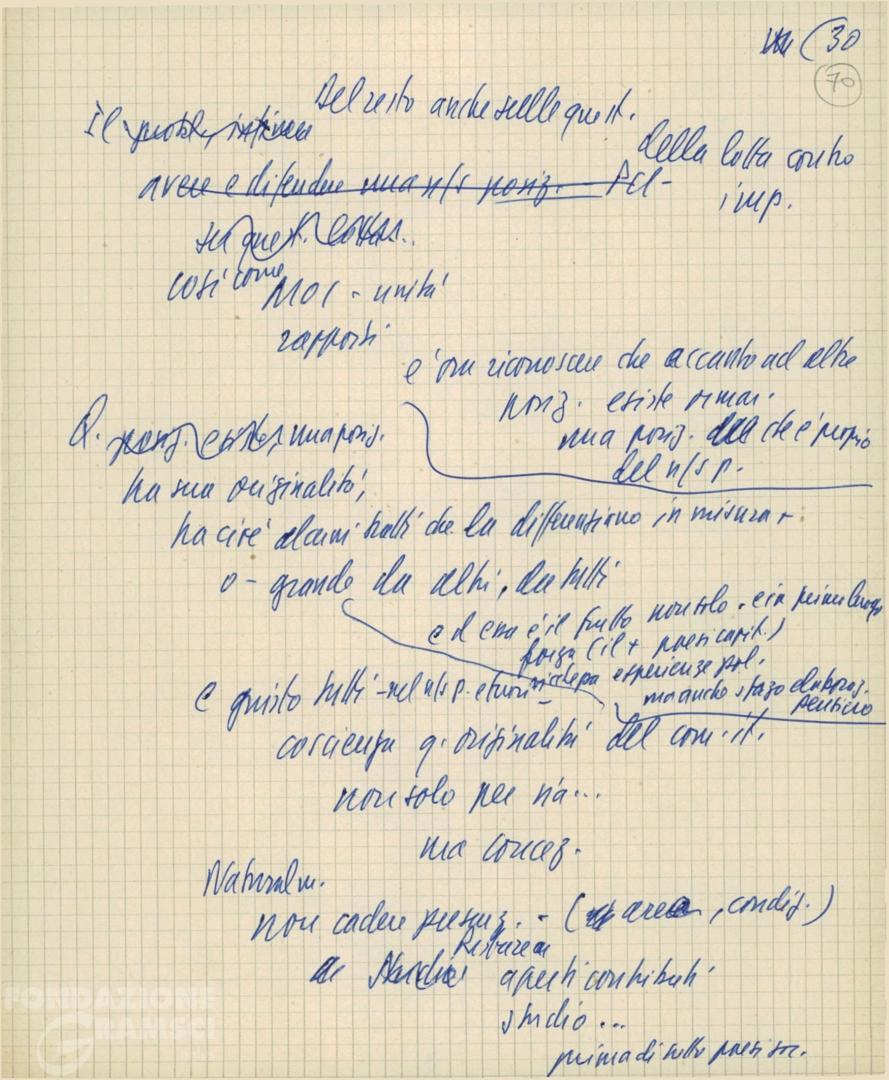 (30
70
Del resto anche sulle quest.
Il probl.
della lotta contro
imp.
avere e difendere una n/s posiz. PCI -
su quest.
così come
MOI - unità
rapporti
è ora riconoscere che accanto ad altre
posiz. esiste ormai
una posiz. che è proprio
del n/s p.
Q. posiz. una posiz.
ha sua originalità,
ha cioè alcuni tratti che la differenziano in misura +
o - grande da altri, da tutti
ed essa è il frutto non solo - e in primo luogo
forza (il + paesi capit.)
esperienze pol.
ma anche sforzo elaboraz.
pensiero
è giusto tutti - nel n/s p. e fuori -
coscienza q. originalità del com. it.
non solo per via...
ma concez.
Naturalm.
non cadere presunz. - (area, condiz.)
Restare
aperti contributi
studio...
prima di tutto paesi soc.
FONDAZIONE
GRAMSCI